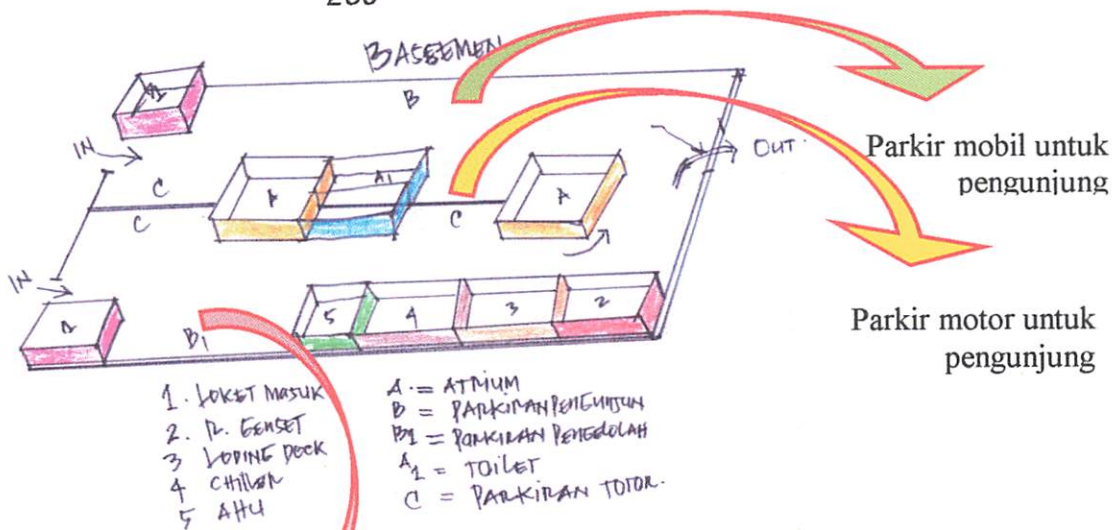 BASEEMEN
B
IN
C
C
A
A1
C
A
OUT
Parkir mobil untuk
pengunjung
IN
B1
5
4
3
2
Parkir motor untuk
pengunjung
1. LOKET MASUK
2. R. GENSET
3 LODING DOCK
4 CHILLER
5 AHU
A = ATRIUM
B = PARKIRAN PENGUNJUN
B1 = PARKIRAN PENGEDOLAH
A1 = TOILET
C = PARKIRAN TOTOR.